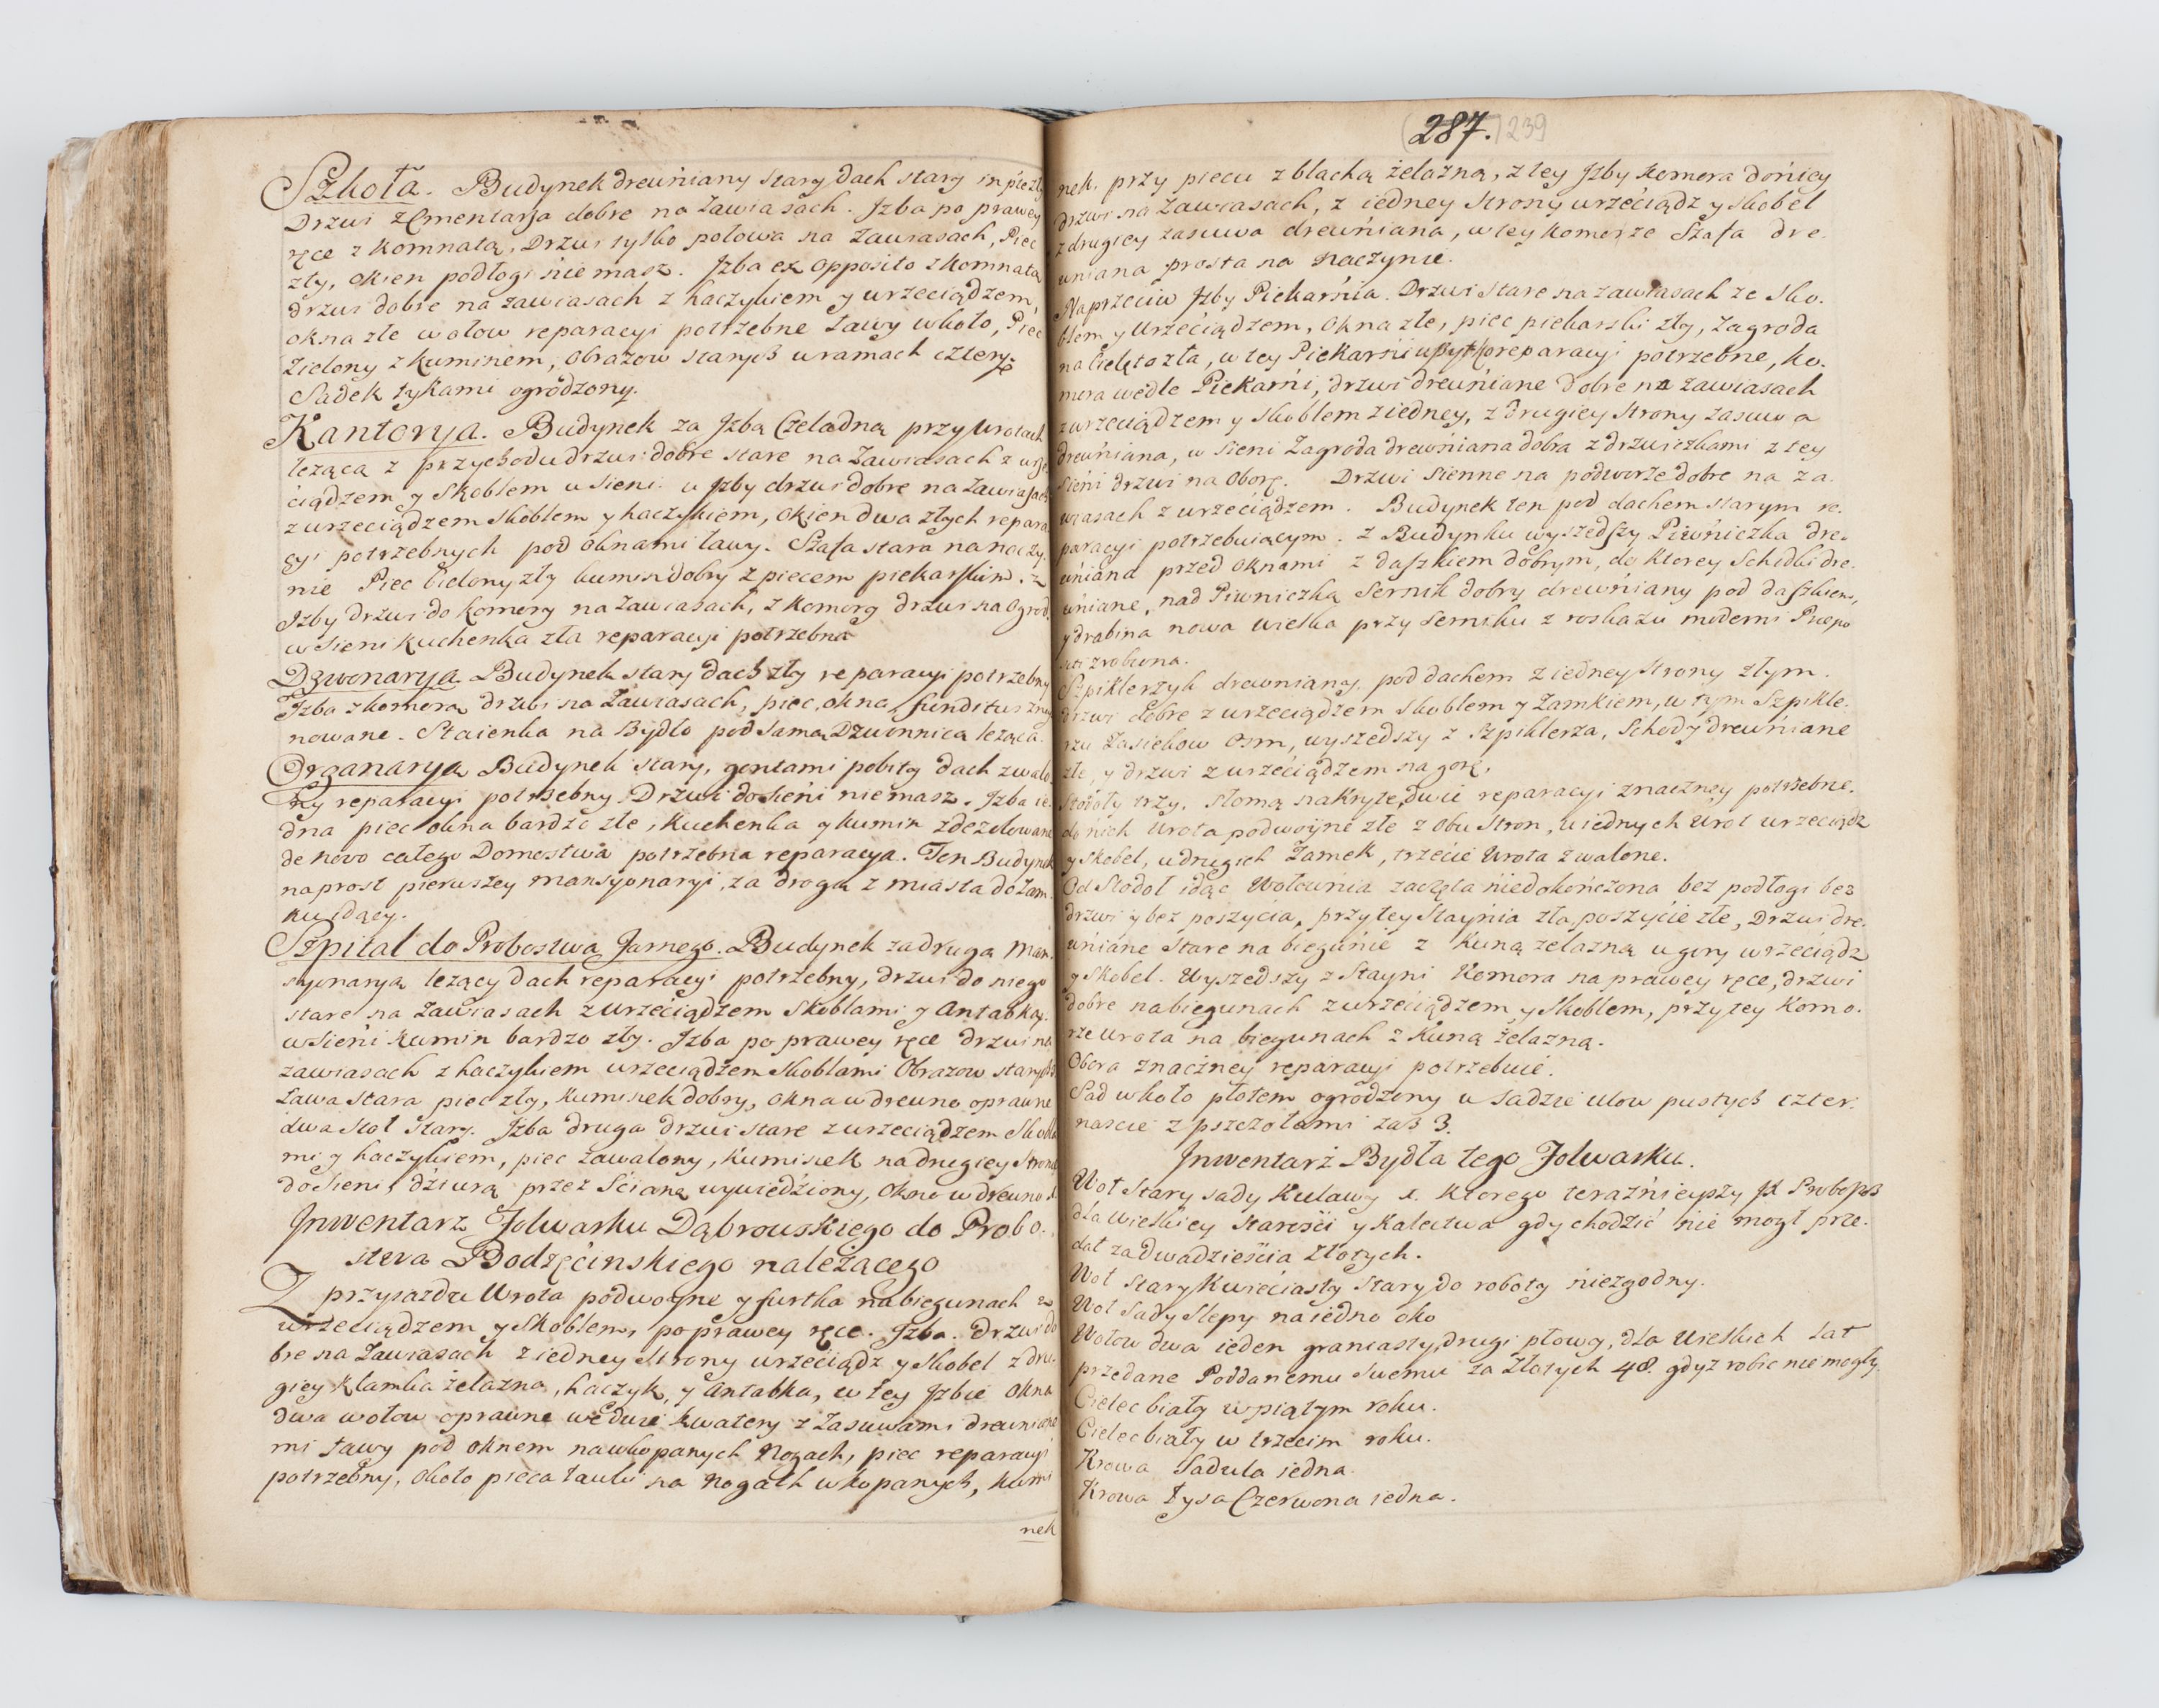 Szkoła. Budynek drewniany stary dach stary
Drzwi z Cmentarza dobre na Zawiasach. Jzba po prawey
ręce z Komnatą, Drzwi tylko połowa na Zawiasach, Piec
zły, okien podłogi nie masz. Jzba ex opposito z Komnatą
drzwi dobre na zawiasach z haczykiem y wrzeciądzem,
okna złe w ołow reparacyi potrzebne ławy wkoło, Piec
Zielony z Kuminem, obrazow starych w ramach cztery.
Sadek tykami ogrodzony.
Kantorya. Budynek za Jzbą Czeladną przy Wrotach
leżącą z przychodu drzwi dobre stare na Zawiasach z wrze
ciądzem y Skoblem w Sieni. u Jzby drzwi dobre na Zawiasach
z wrzeciądzem Skoblem y haczykiem, okien dwa złych repara
cyi potrzebnych pod oknami ławy. Szafa stara na naczy
nie Piec bielony zły kumin dobry z piecem piekarskim. z
Jzby drzwi do Komory na Zawiasach, z Komory drzwi na ogrod,
w Sieni Kuchenka zła reparacyi potrzebna
Dzwonarya Budynek stary dach zły reparacyi potrzebny
Jzba z komorą drzwi na Zawiasach, piec, okna, funditus zruy
nowane. Staienka na Bydło pod samą Dzwonnicą leżąca.
Organarya Budynek stary, gontami pobity dach zwalo
ny reparacyi potrzebny. Drzwi do Sieni nie masz. Jzba ie
dna piec okna bardzo złe, Kuchenka y kumin zdezelowane
de novo całego Domostwa potrzebna reparacya. Ten Budynek
naprost pierwszey mansyonaryi, za drogą z miasta do Zam
ku idący.
Szpital do Probostwa Farnego. Budynek za drugą Man
syonaryą leżący dach reparacyi potrzebny, drzwi do niego
stare na Zawiasach z wrzeciądzem Skoblami y Antabką.
w Sieni Kumin bardzo zły. Jzba po prawey ręce drzwi na
zawiasach z haczykiem wrzeciądzem Skoblami Obrazow starych
Ława stara piec zły, Kuminek dobry, okna w drewno oprawne
dwa Stoł Stary. Jzba druga drzwi stare z wrzeciądzem Skobla
mi y haczykiem, piec zawalony, Kuminek na drugiey Stronę
do Sieni dziurą przez Scianę wywiedziony, okno w drewno
Jnwentarz Folwarku Dąbrowskiego do Probo.
stwa Bodzęcinskiego należącego
Z przyiazdu Wrota podwoyne y furtka na biegunach z
wrzeciądzem y Skoblem, po prawey ręce. Jzba. Drzwi do
bre na Zawiasach z iedney Strony wrzeciądz y Skobel z dru
giey Klamka żelazna, haczyk, y Antabka, w tey Jzbie okna
dwa w ołow oprawne we dwie kwatery z Zasuwami drewniane
mi ławy pod oknem na wkopanych Nogach, piec reparacyi
potrzebny, około pieca ławki na Nogach wkopanych, kumi
nek
287. 239
nek. przy piecu z blachą żelazną, z tey Jzby Komora do niey
drzwi na Zawiasach, z iedney Strony wrzeciądz y Skobel
z drugiey zasuwa drewniana, w tey Komorze Szafa dre.
wniana prosta na Naczynie.
Naprzeciw Jzby Piekarnia. Drzwi stare na zawiasach ze Sko.
blem y Wrzeciądzem, okna złe, piec piekarski zły, Zagroda
na Cielęta zła, w tey Piekarni wszytko reparacyi potrzebne, ko.
mora wedle Piekarni, drzwi drewniane dobre na zawiasach
z wrzeciądzem y Skoblem z iedney, z drugiey Strony zasuwa
drewniana, w Sieni Zagroda drewniana dobra z drzwiczkami z tey
Sieni drzwi na Oborę. Drzwi Sienne na podworze dobre na za.
wiasach z wrzeciądzem. Budynek ten pod dachem starym re.
paracyi potrzebuiącym. z Budynku wyszedszy Piwniczka dre.
wniana przed oknami z daszkiem dobrym, do ktorey Schodki dre.
wniane, nad Piwniczką Sernik dobry drewniany pod daszkiem,
y drabina nowa wielka przy Serniku z roskazu moderni Præpo
siti zrobiona.
Szpiklerzyk drewniany pod dachem z iedney Strony złym.
drzwi dobre z wrzeciądzem Skoblem y Zamkiem, w tym Szpikle.
rzu Zasiekow osm, wyszedszy z Szpiklerza, Schody drewniane
złe, y drzwi z wrzeciądzem na gorę,
Stodoły trzy, słomą nakryte, dwie reparacyi znaczney potrzebne.
do nich Wrota podwoyne złe z obu Stron, u iednych Wrot wrzeciądz
y Skobel, u drugich Zamek, trzecie Wrota zwalone.
Od Stodoł idąc Wołownia zaczęta niedokończona bez podłogi bez
drzwi y bez poszycia, przy tey Staynia zła, poszycie złe, Drzwi dre.
wniane Stare na biegunie z Kuną żelazną u gory wrzeciądz
y Skobel. Wyszedszy z Stayni Komora na prawey ręce, drzwi
dobre na biegunach z wrzeciądzem y Skoblem, przy tey Komo.
rze wrota na biegunach z Kuną żelazną.
Obora znaczney reparacyi potrzebuie.
Sad wkoło płotem ogrodzony w Sadzie ulow pustych czter.
nascie z pszczołami zas 3.
Jnwentarz Bydła tego Folwarku.
Woł Stary sady Kulawy 1. ktorego teraznieyszy Probosz
dla wielkiey starosci y Kalectwa gdy chodzić nie mogł prze.
dał za dwadziescia złotych.
Woł stary Kwieciasty stary do roboty niezgodny.
Woł Sady Slepy na iedno oko
Wołow dwa ieden graniasty, drugi płowy, dla Wielkich Lat
przedane Poddanemu Swemu za Złotych 48. gdyz robic nie mogły.
Cielec biały w piątym roku.
Cielec biały w trzecim roku.
Krowa Sadula iedna
Krowa Łysa Czerwona iedna.